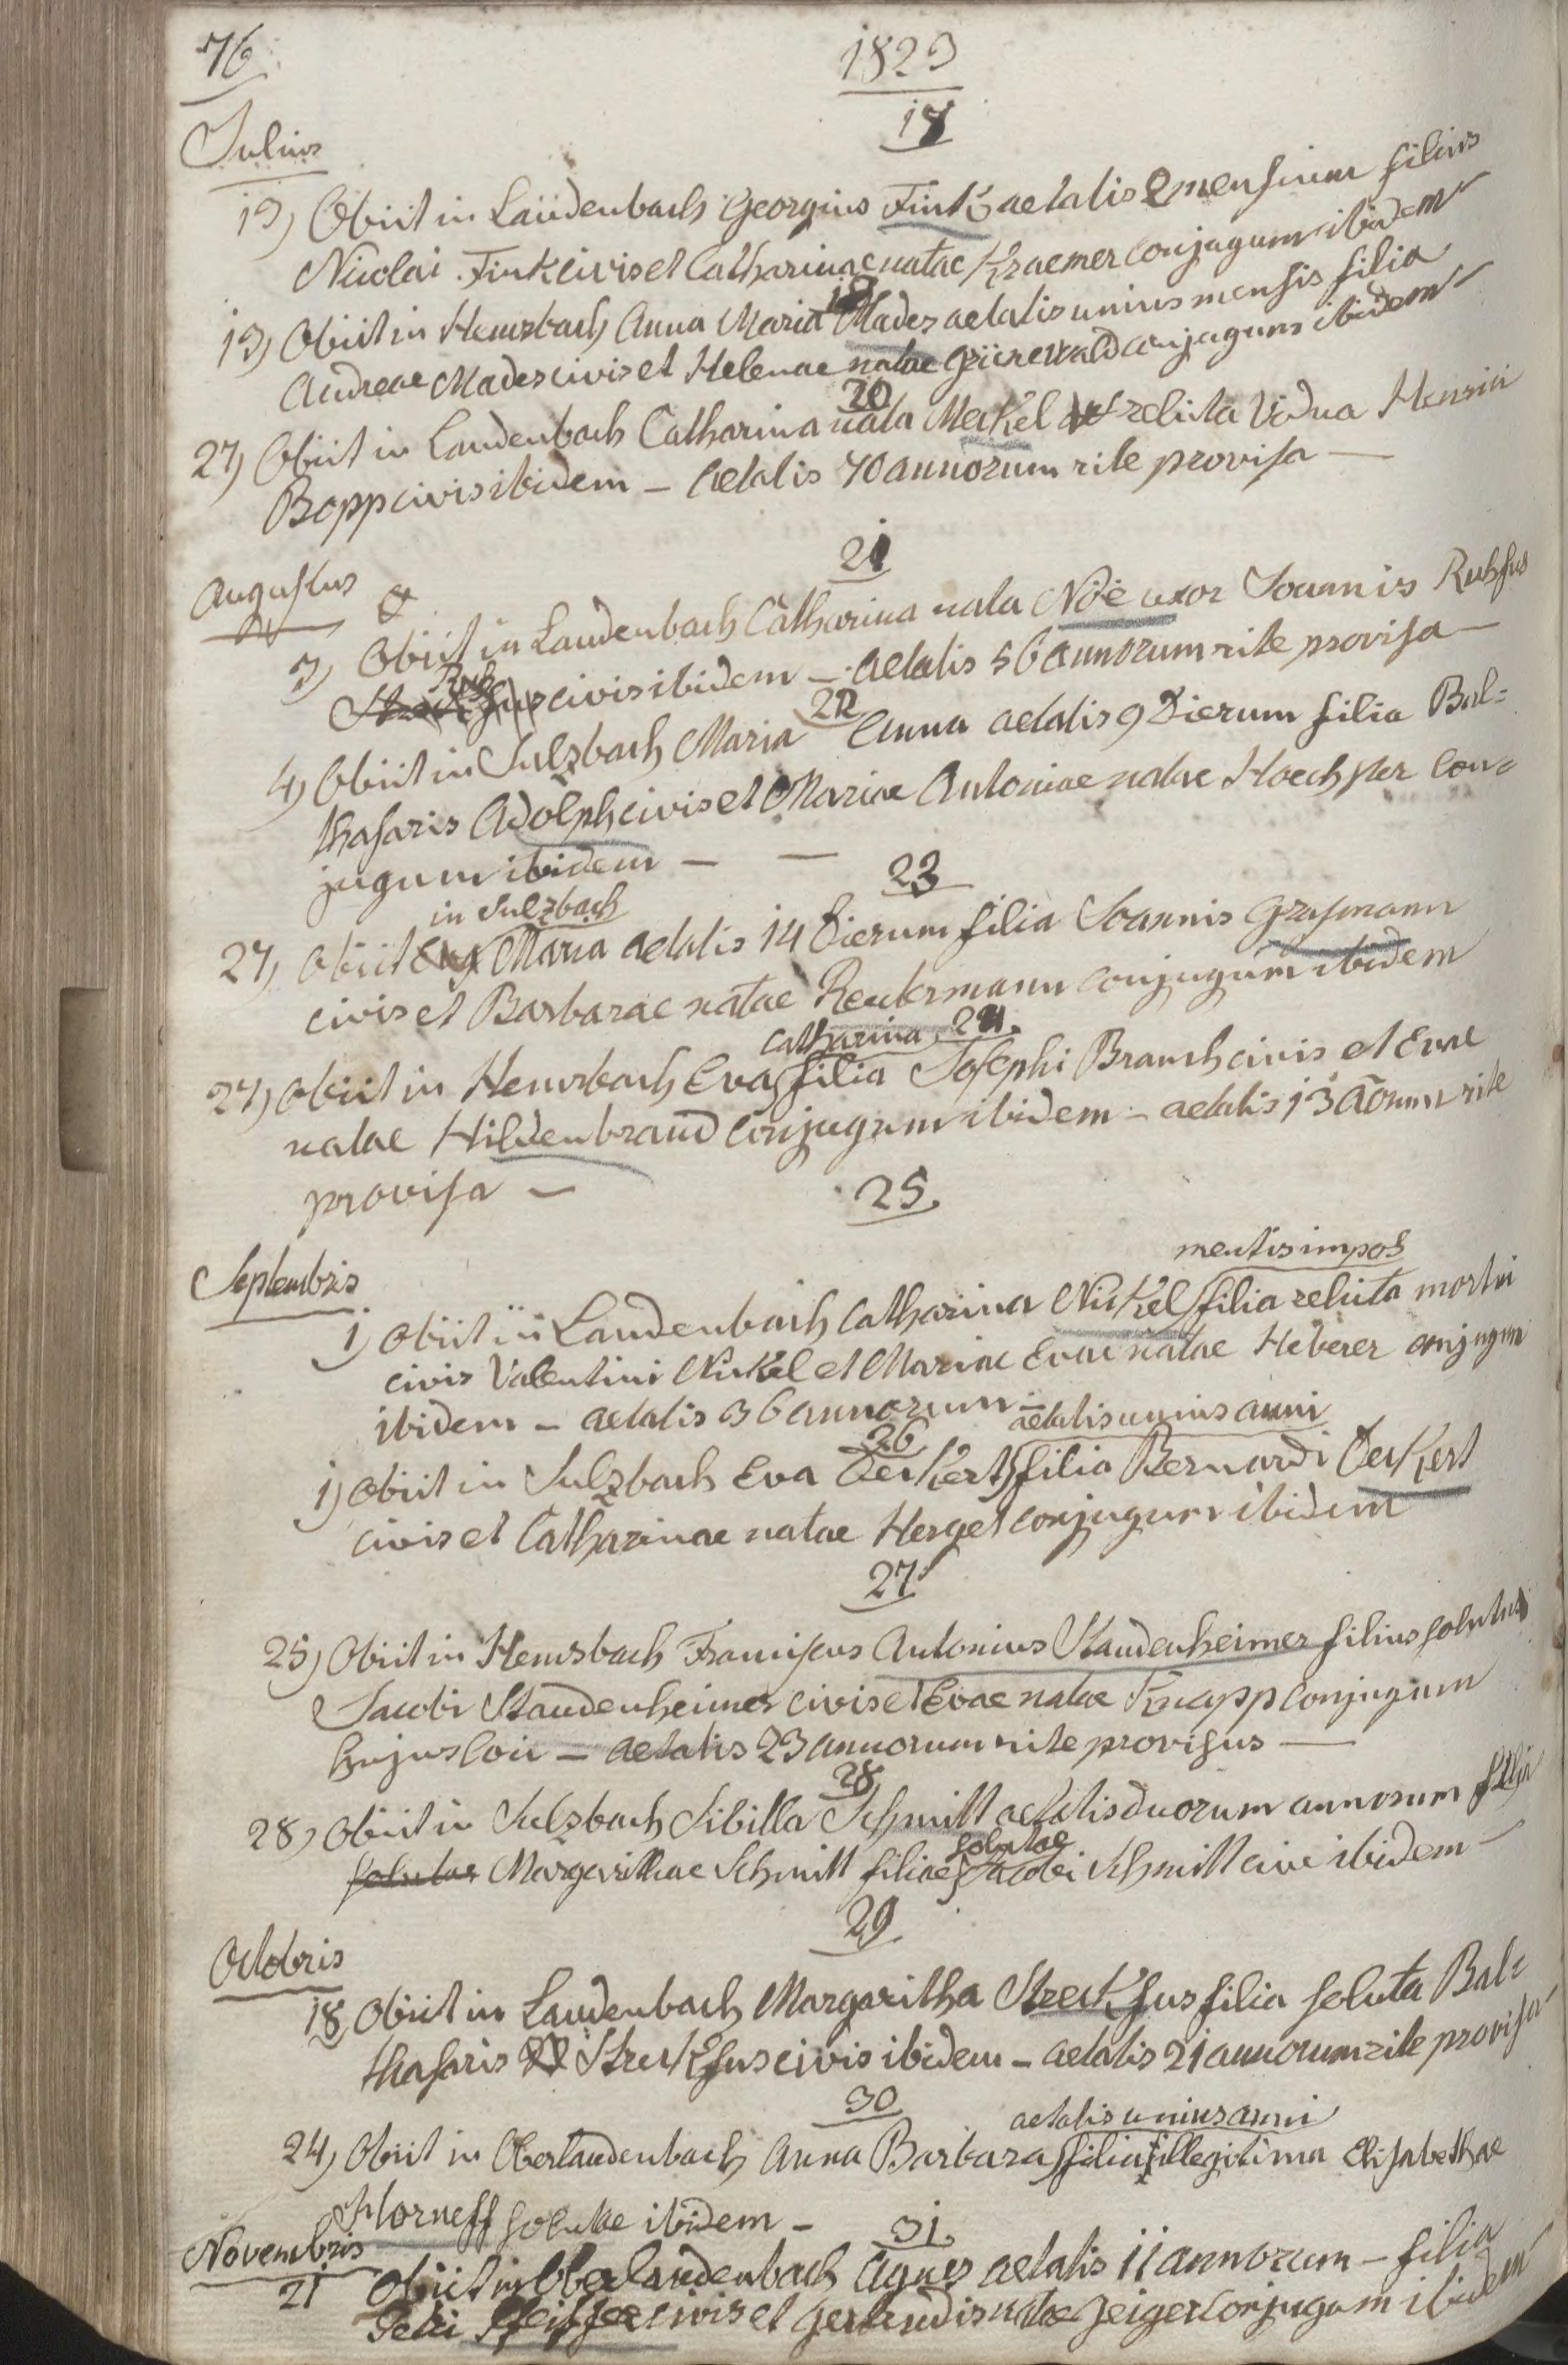 76
1823
18
Julius
19) Obiit in Laüdenbach Georgius Fink aetatis 2 mensium filius
Nicolai Fink civis et Catharinae natae Kraemer conjugum ibidem
19
19) Obiit in Hemsbach Anna Maria Mades aetatis unius mensis filia
Andreae Mades civis et Helenae natae Grünewald conjugum ibidem
20
27) Obiit in Laudenbach Catharina nata Merkel relicta vidua Henrici
Bopp civis ibidem – aetatis 70 annorum rite provisa –
21
Augustus
3) Obiit in Laudenbach Catharina nata Nöe uxor Joannis Ruhfus
Ruh
fus civis ibidem – aetatis 56 annorum rite provisa –
22
4) Obiit in Sulzbach Maria Anna aetatis 9 dierum filia Bal=
thasaris Adolph civis et Mariae Antoniae natae Hoechster con=
jugum ibidem – –
23
in Sulzbach
27) Obiit Maria aetatis 14 dierum filia Joannis Grasmann
civis et Barbarae natae Reutermann conjugum ibidem
Catharina 24.
27) Obiit in Hemsbach Eva filia Josephi Brausch civis et Evae
natae Hildenbrand conjugum ibidem – aetatis 13 aorum rite
provisa –
25.
Septembris
mentis impos
1) Obiit in Laudenbach Catharina Nickel filia relicta mortui
civis Valentini Nickel et Mariae Evae natae Heberer conjugum
ibidem – aetatis 36 annorum –
26 aetatis unius anni
1) Obiit in Sulzbach Eva Oeckert filia Bernardi Oeckert
civis et Catharinae natae Herget conjugum ibidem
27
25) Obiit in Hemsbach Franciscus Antonius Staudenheimer filius solutus
Jacobi Staudenheimer civis et Evae natae Knapp conjugum
hujus loci – aetatis 23 annorum rite provisus –
28
28) Obiit in Sulzbach Sibilla Schmitt aetatis duorum annorum filia
solutae
solutae Margarithae Schmitt filiae Jacobi Schmitt civi ibidem –
29
Octobris
18 Obiit in Laudenbach Margaritha Streckfus filia soluta Bal=
thasaris Streckfus civis ibidem – aetatis 21 annorum rite provisa
30
aetatis unius anni
24) Obiit in Oberlaudenbach Anna Barbara filia illegitima Elisabethae
Horneff solutae ibidem –
31.
Novembris
21 Obiit in Oberlaudenbach Agnes aetatis 11 annorum – filia
Petri Pfeiffer civis et Gertrudis natae Zeiger conjugum ibidem